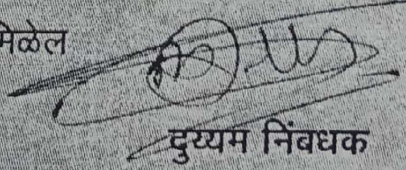 मिळेल
दुय्यम निंबधक